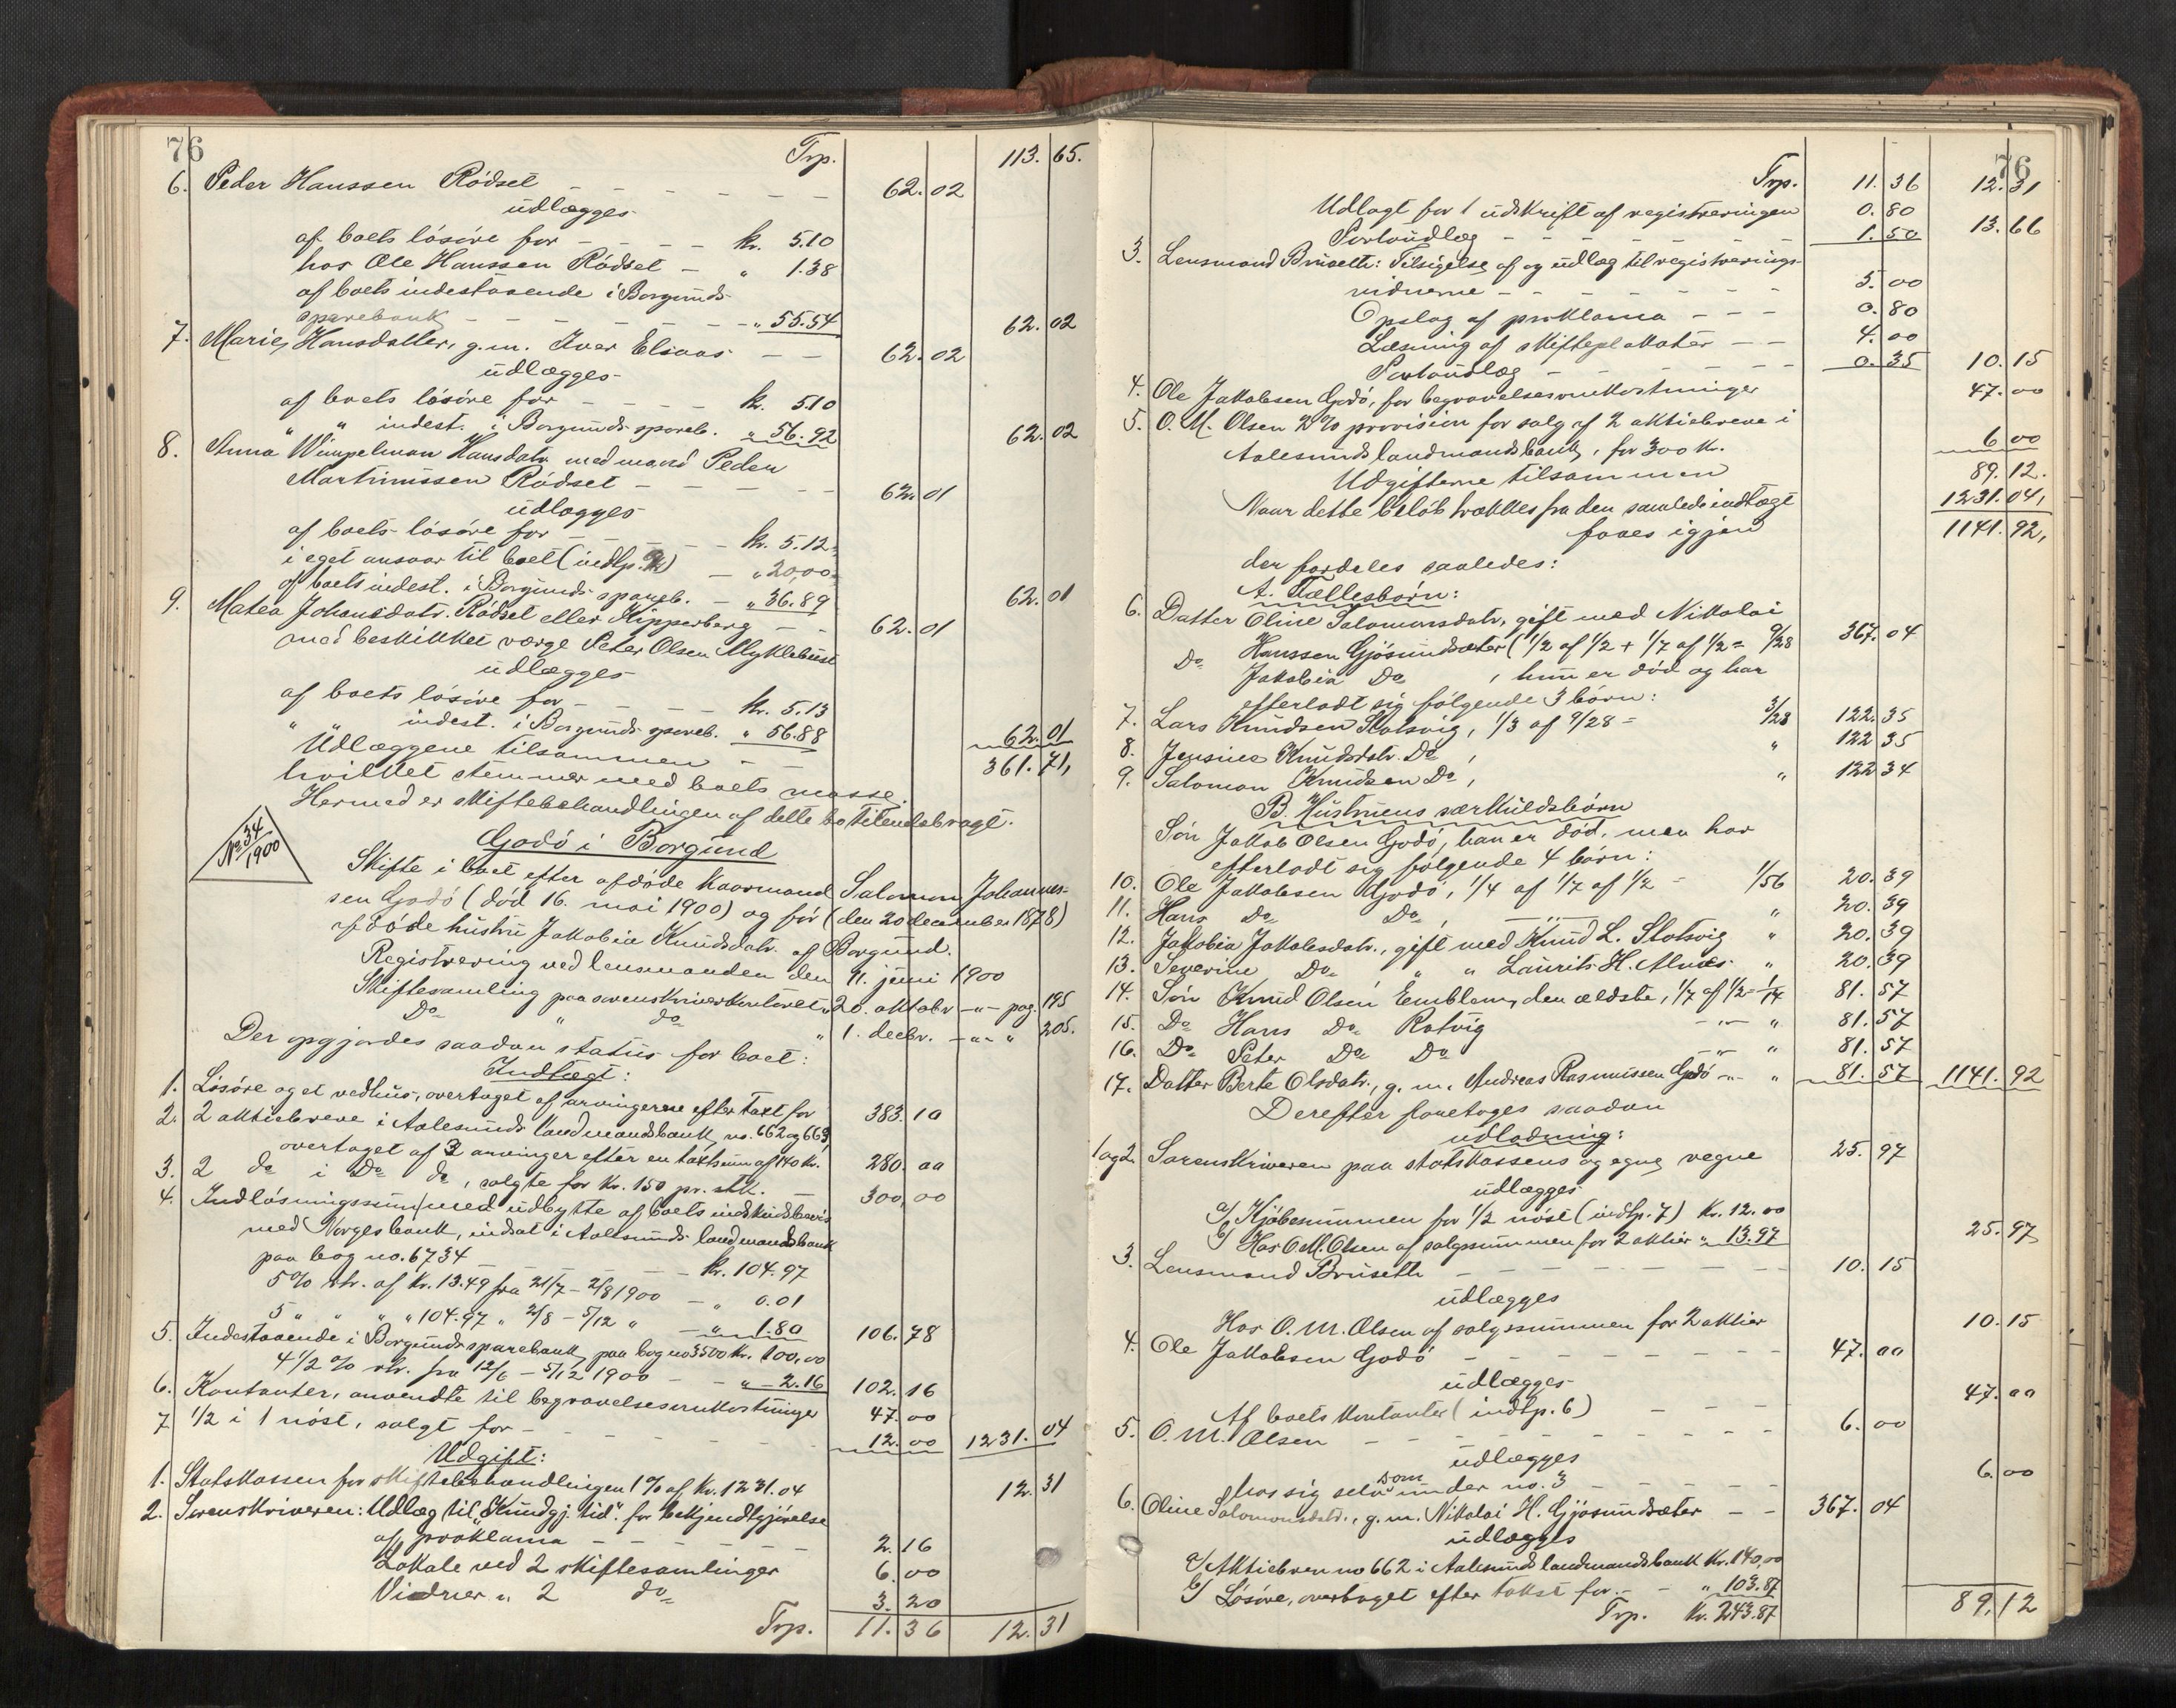 76
Trp. 113.65.
6. Peder Hanssen Rödset - - - - - 62.02
üdlægges
af boets lösöre for - - - - kr. 5.10
hos Ole Hanssen Rödset - " 1.38
af boets indestaaende i Borgünds
sparebank - - - - - - " 55.54 62.02
7. Marie, Hansdatter, g.m. Iver Elsaas - - 62.02
üdlægges
af boets lösöre for - - - - kr. 5.10
" " indest. i Borgünds spareb. " 56.92 62.02
8. Anna Wimpelman Hansdatr. med mand Peder
Martinüssen Rödset - - - - - 62.01
üdlægges
af boets lösöre for - - - - kr. 5.12
i eget ansvar til boet (indtp. ) - " 20,00
af boets indest. i Borgünds spareb. - " 36.89 62.01
9. Matea Johansdatr. Rödset eller Klipperberg - - 62.01
med beskikket værge Peter Olsen Myklebüst
üdlægges
af boets lösöre for - - - - kr. 5.13
" " indest. i Borgünds spareb. " 56.88 62.01
Udlæggene tilsammen - - 361.71,
hvilket stemmer med boets masse.
Hermed er skiftebehandlingen af dette bo tilendebragt.
No 34/1900
Godö i Borgünd
Skifte i boet efter afdöde kaarmand Salomon Johannes-
sen Godö (död 16. mai 1900) og för (den 20 december 1878)
afdöde hüstrü Jakobia Knüdsdatr. af Borgünd.
Registrering ved lensmanden den 11. jüni 1900
Skiftesamling paa sorenskriverkontoret 20. oktobr. -"- pag. 195
Do " do " 1. decbr. -"- " 205.
Der opgjordes saadan statüs for boet:
Indtægt:
1. Lösöre og et vedhüs, overtaget af arvingerne efter taxt for 383.10
2. 2 aktiebreve i Aalesünds landmandsbank, no. 662 og 663,
overtaget af 3 arvinger efter en taxtsüm af 140 kr. 280.00
3. 2 do i Do do, solgte for kr. 150 pr. stk. - 300,00
4. Indlösningssüm med üdbytte af boets indsküdsbevis
med Norges bank, indsat i Aalesünds landmandsbank
paa bog no. 6734 - - - - - kr. 104.97
5% rtr. af kr. 13.49 fra 21/7 - 2/8 1900 - " 0.01
5 " " " " 104.97 " 2/8 - 5/12 " - " 1.80 106.78
5. Indestaaende i Borgünds sparebank paa bog no 3500 kr. 100,00
4 1/2 % rtr. fra 12/6 - 5/12 1900 - - " 2.16 102.16
6. Kontanter, anvendte til begravelsesomkostninger 47.00
7 1/2 i 1 nöst, solgt for - - - - - - 12.00 1231.04
Udgift:
1. Statskassen for skiftebehandlingen 1% af kr. 1231.04 12.31
2. Sorenskriveren: Udlæg til "Kündgj. tid." for bekjendtgjörelse
af proklama - - - - - - 2.16
Lokale ved 2 skiftesamlinger 6.00
Vidner " 2 do 3.20
Trp. 11.36 12.31
76
Trp. 11.36 12.31
Udlagt for 1 üdskrift af registreringen 0.80
Portoüdlæg - - - - - - 1.50 13.66
3. Lensmand Brüseth: Tilsigelse af og üdlæg til registrerings-
vidnerne - - - - - - - 5.00
Opslag af proklama - - - 0.80
Læsning af skifteplakater - - 4.00
Portoüdlæg - - - - - - 0.35 10.15
4. Ole Jakobsen Godö, for begravelsesomkostninger 47.00
5. O. M. Olsen 2% provision for salg af 2 aktiebreve i
Aalesünds landmandsbank, for 300 kr. 6.00
Udgifterne tilsammen 89.12.
Naar dette belöb trækkes fra den samlede indtægt 1231.04,
faaes igjen 1141.92,
der fordeles saaledes:
A. Fællesbörn:
6. Datter Oline Salomonsdatr., gift med Nikolai
Hanssen Gjösündsæter (1/2 af 1/2 + 1/7 af 1/2 = 9/28 367.04
Do Jakobia Do, hün er död og har
efterladt sig fölgende 3 börn:
7. Lars Knüdsen Slotsvig, 1/3 af 9/28 = 3/28 122.35
8. Jensine Knüdsdtr. Do, " 122.35
9. Salomon Knüdsen Do, " 122.34
B. Hüstrüens særküldsbörn
Sön Jakob Olsen Godö, han er död, men har
efterladt sig fölgende 4 börn:
10. Ole Jakobsen Godö, 1/4 af 1/7 af 1/2 = 1/56 20.39
11. Hans Do Do, -"- " 20.39
12. Jakobia Jakobsdtr., gift med Knüd L. Slotsvig " 20.39
13. Severine Do " " Laürits H. Alnes " 20.39
14. Sön Knüd Olsen Emblem, den ældste, 1/7 af 1/2 = 1/14 81.57
15. Do Hans Do Rotvig -"- " 81.57
16. Do Peter Do Do -"- " 81.57
17. Datter Berte Olsdatr., g. m. Andreas Rasmüssen Godö -"- " 81.57 1141.92
Derefter foretoges saadan
udlodning:
1 og 2. Sorenskriveren paa statskassens og egne vegne 25.97
üdlægges
a/ Kjöbesümmen for 1/2 nöst (indtp. 7) kr. 12.00
b/ Hos O.M. Olsen af salgssümmen for 2 aktier " 13.97 25.97
3. Lensmand Brüseth - - - - - - - 10.15
üdlægges
Hos O. M. Olsen af salgssümmen for 2 aktier 10.15
4. Ole Jakobsen Godö - - - - - - - 47.00
üdlægges
Af boets kontanter (indtp. 6) - - - 47.00
5. O. M. Olsen - - - - - - - - 6.00
üdlægges
hos sig selv som ünder no. 3 - - - - 6.00
6. Oline Salomonsdatr., g. m. Nikolai H. Gjösündsæter - - 367.04
üdlægges
a/ Aktiebrev no 662 i Aalesünds landmandsbank kr. 140,00
b/ Lösöre, overtaget efter takst for - - " 103.87
Trp. kr. 243.87 89,12